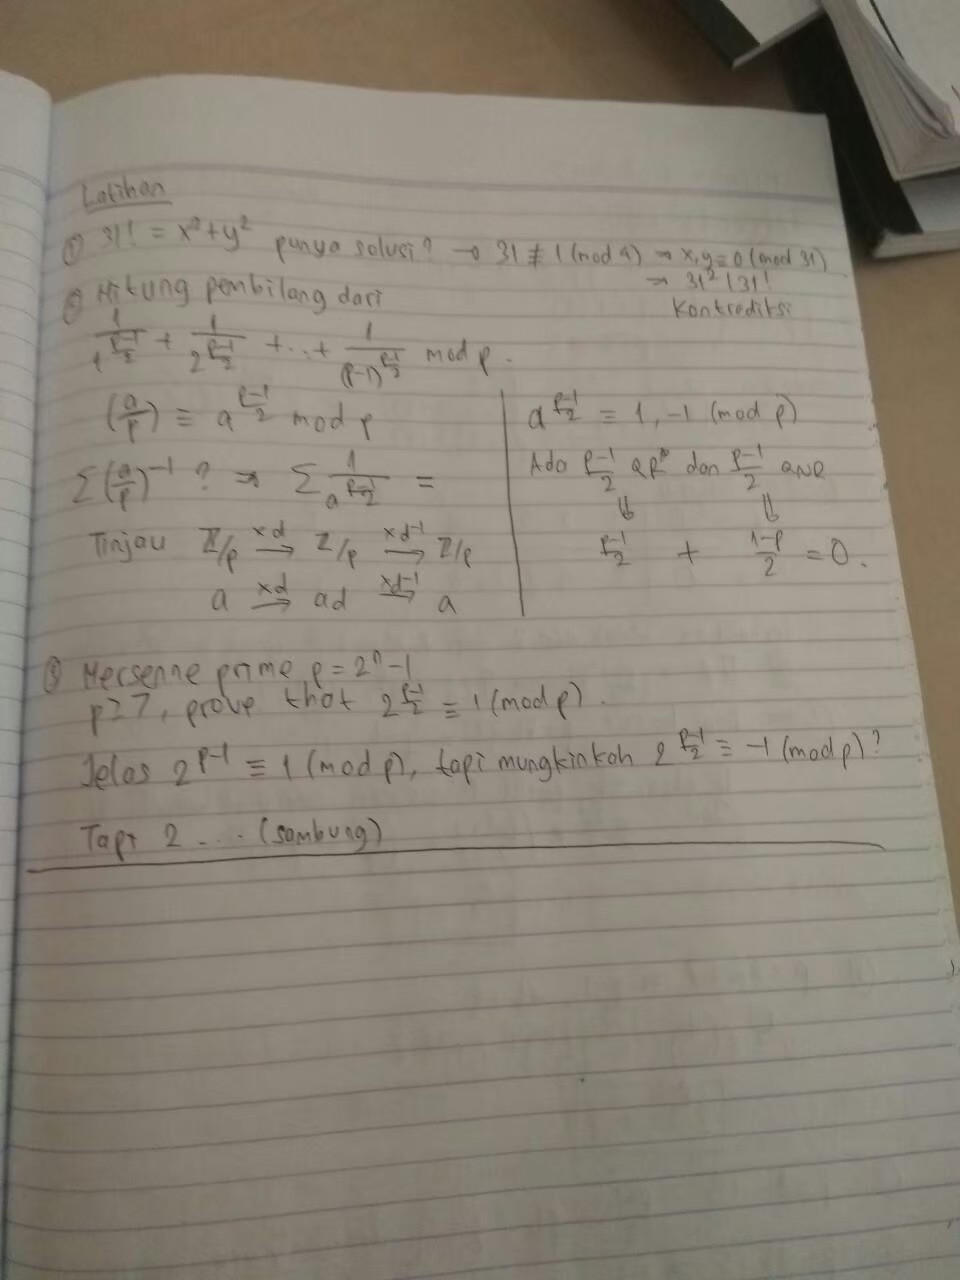 Latihan
① 31! = x² + y² punya solusi? → 31 ≢ 1 (mod 4) → x, y ≡ 0 (mod 31)
→ 31² | 31!
Kontradiksi
② Hitung pembilang dari
1/1^((p-1)/2) + 1/2^((p-1)/2) + ... + 1/(p-1)^((p-1)/2) mod p.
(a/p) ≡ a^((p-1)/2) mod p
Σ (a/p)^-1 ? → Σ 1/a^((p-1)/2) =
Tinjau ℤ/p →(xd) ℤ/p →(xd^-1) ℤ/p
a →(xd) ad →(xd^-1) a
a^((p-1)/2) ≡ 1, -1 (mod p)
Ada (p-1)/2 QR dan (p-1)/2 QNR
⇓ ⇓
(p-1)/2 + (1-p)/2 = 0.
③ Mersenne prime p = 2ⁿ - 1
p ≥ 7, prove that 2^((p-1)/2) ≡ 1 (mod p).
Jelas 2^(p-1) ≡ 1 (mod p), tapi mungkinkah 2^((p-1)/2) ≡ -1 (mod p)?
Tapi 2 ... (sambung)